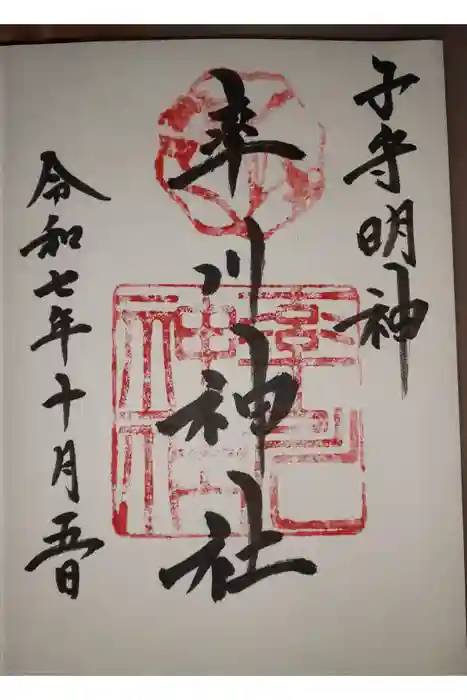 子守明神
率川神社
令和七年十月五日